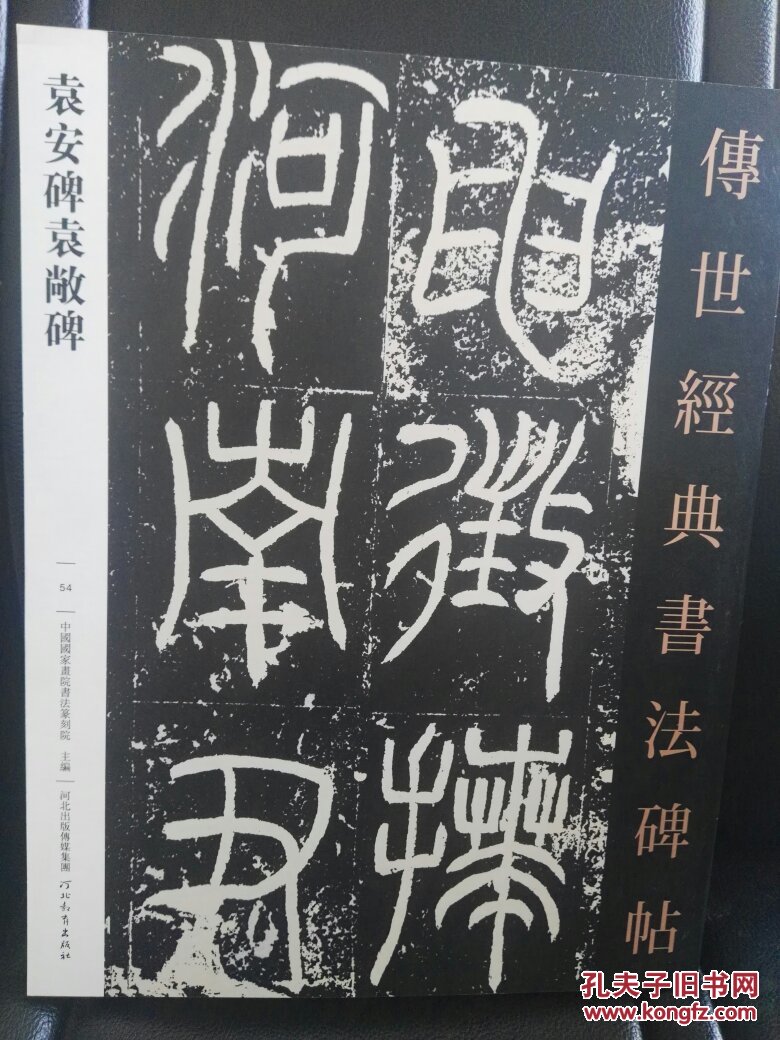 傳世經典書法碑帖
申徵拜
河南尹
袁安碑袁敞碑
54
中國國家畫院書法篆刻院 主編
河北出版傳媒集團
河北教育出版社
孔夫子旧书网
www.kongfz.com